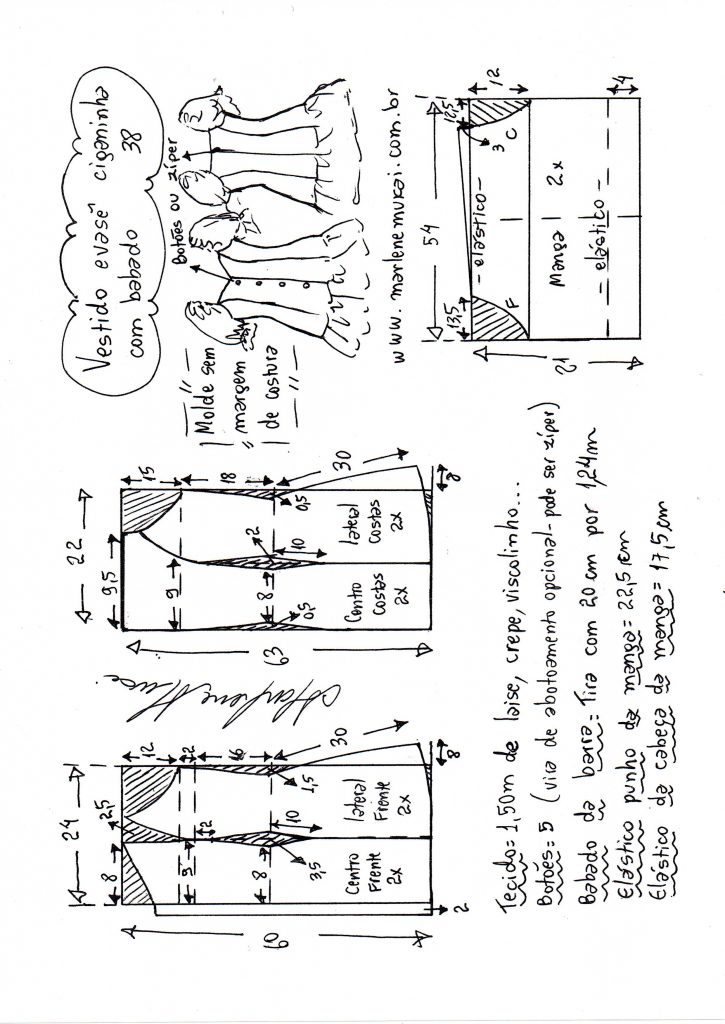 Vestido evasê ciganinha
com babado 38
Botões ou zíper
Molde sem
margem
de costura
www.marlenemukai.com.br
24
8
2,5
12
2
16
30
2
9
8
10
3,5
1,5
8
2
60
Centro
Frente
2x
lateral
Frente
2x
Marlene Mukai
22
9,5
15
18
30
9
8
2
10
0,5
0,5
8
63
Centro
Costas
2x
lateral
Costas
2x
54
13,5
12,5
12
4
21
F
3
C
- elástico -
Manga 2x
= elástico -
Tecido = 1,50m de laise, crepe, viscolinho...
Botões = 5 (vira de abotoamento opcional - pode ser zíper)
Babado da barra = Tira com 20 cm por 1,24m
Elástico punho da manga = 22,5 cm
Elástico da cabeça da manga = 17,5 cm